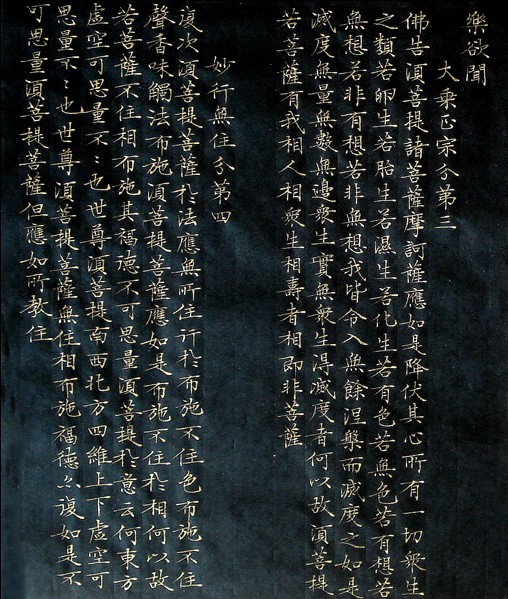 樂欲聞
大乘正宗分第三
佛告湏菩提諸菩薩摩訶薩應如是降伏其心所有一切衆生
之類若卵生若胎生若濕生若化生若有色若無色若有想若
無想若非有想若非無想我皆令入無餘涅槃而滅度之如是
滅度無量無數無邊衆生實無衆生得滅度者何以故湏菩提
若菩薩有我相人相衆生相壽者相即非菩薩
妙行無住分第四
復次湏菩提菩薩扵法應無所住行扵布施不住色布施不住
聲香味觸法布施湏菩提菩薩應如是布施不住扵相何以故
若菩薩不住相布施其福德不可思量湏菩提扵意云何東方
虛空可思量不〻也世尊湏菩提南西北方四維上下虛空可
思量不〻也世尊湏菩提菩薩無住相布施福德亦復如是不
可思量湏菩提菩薩但應如所教住